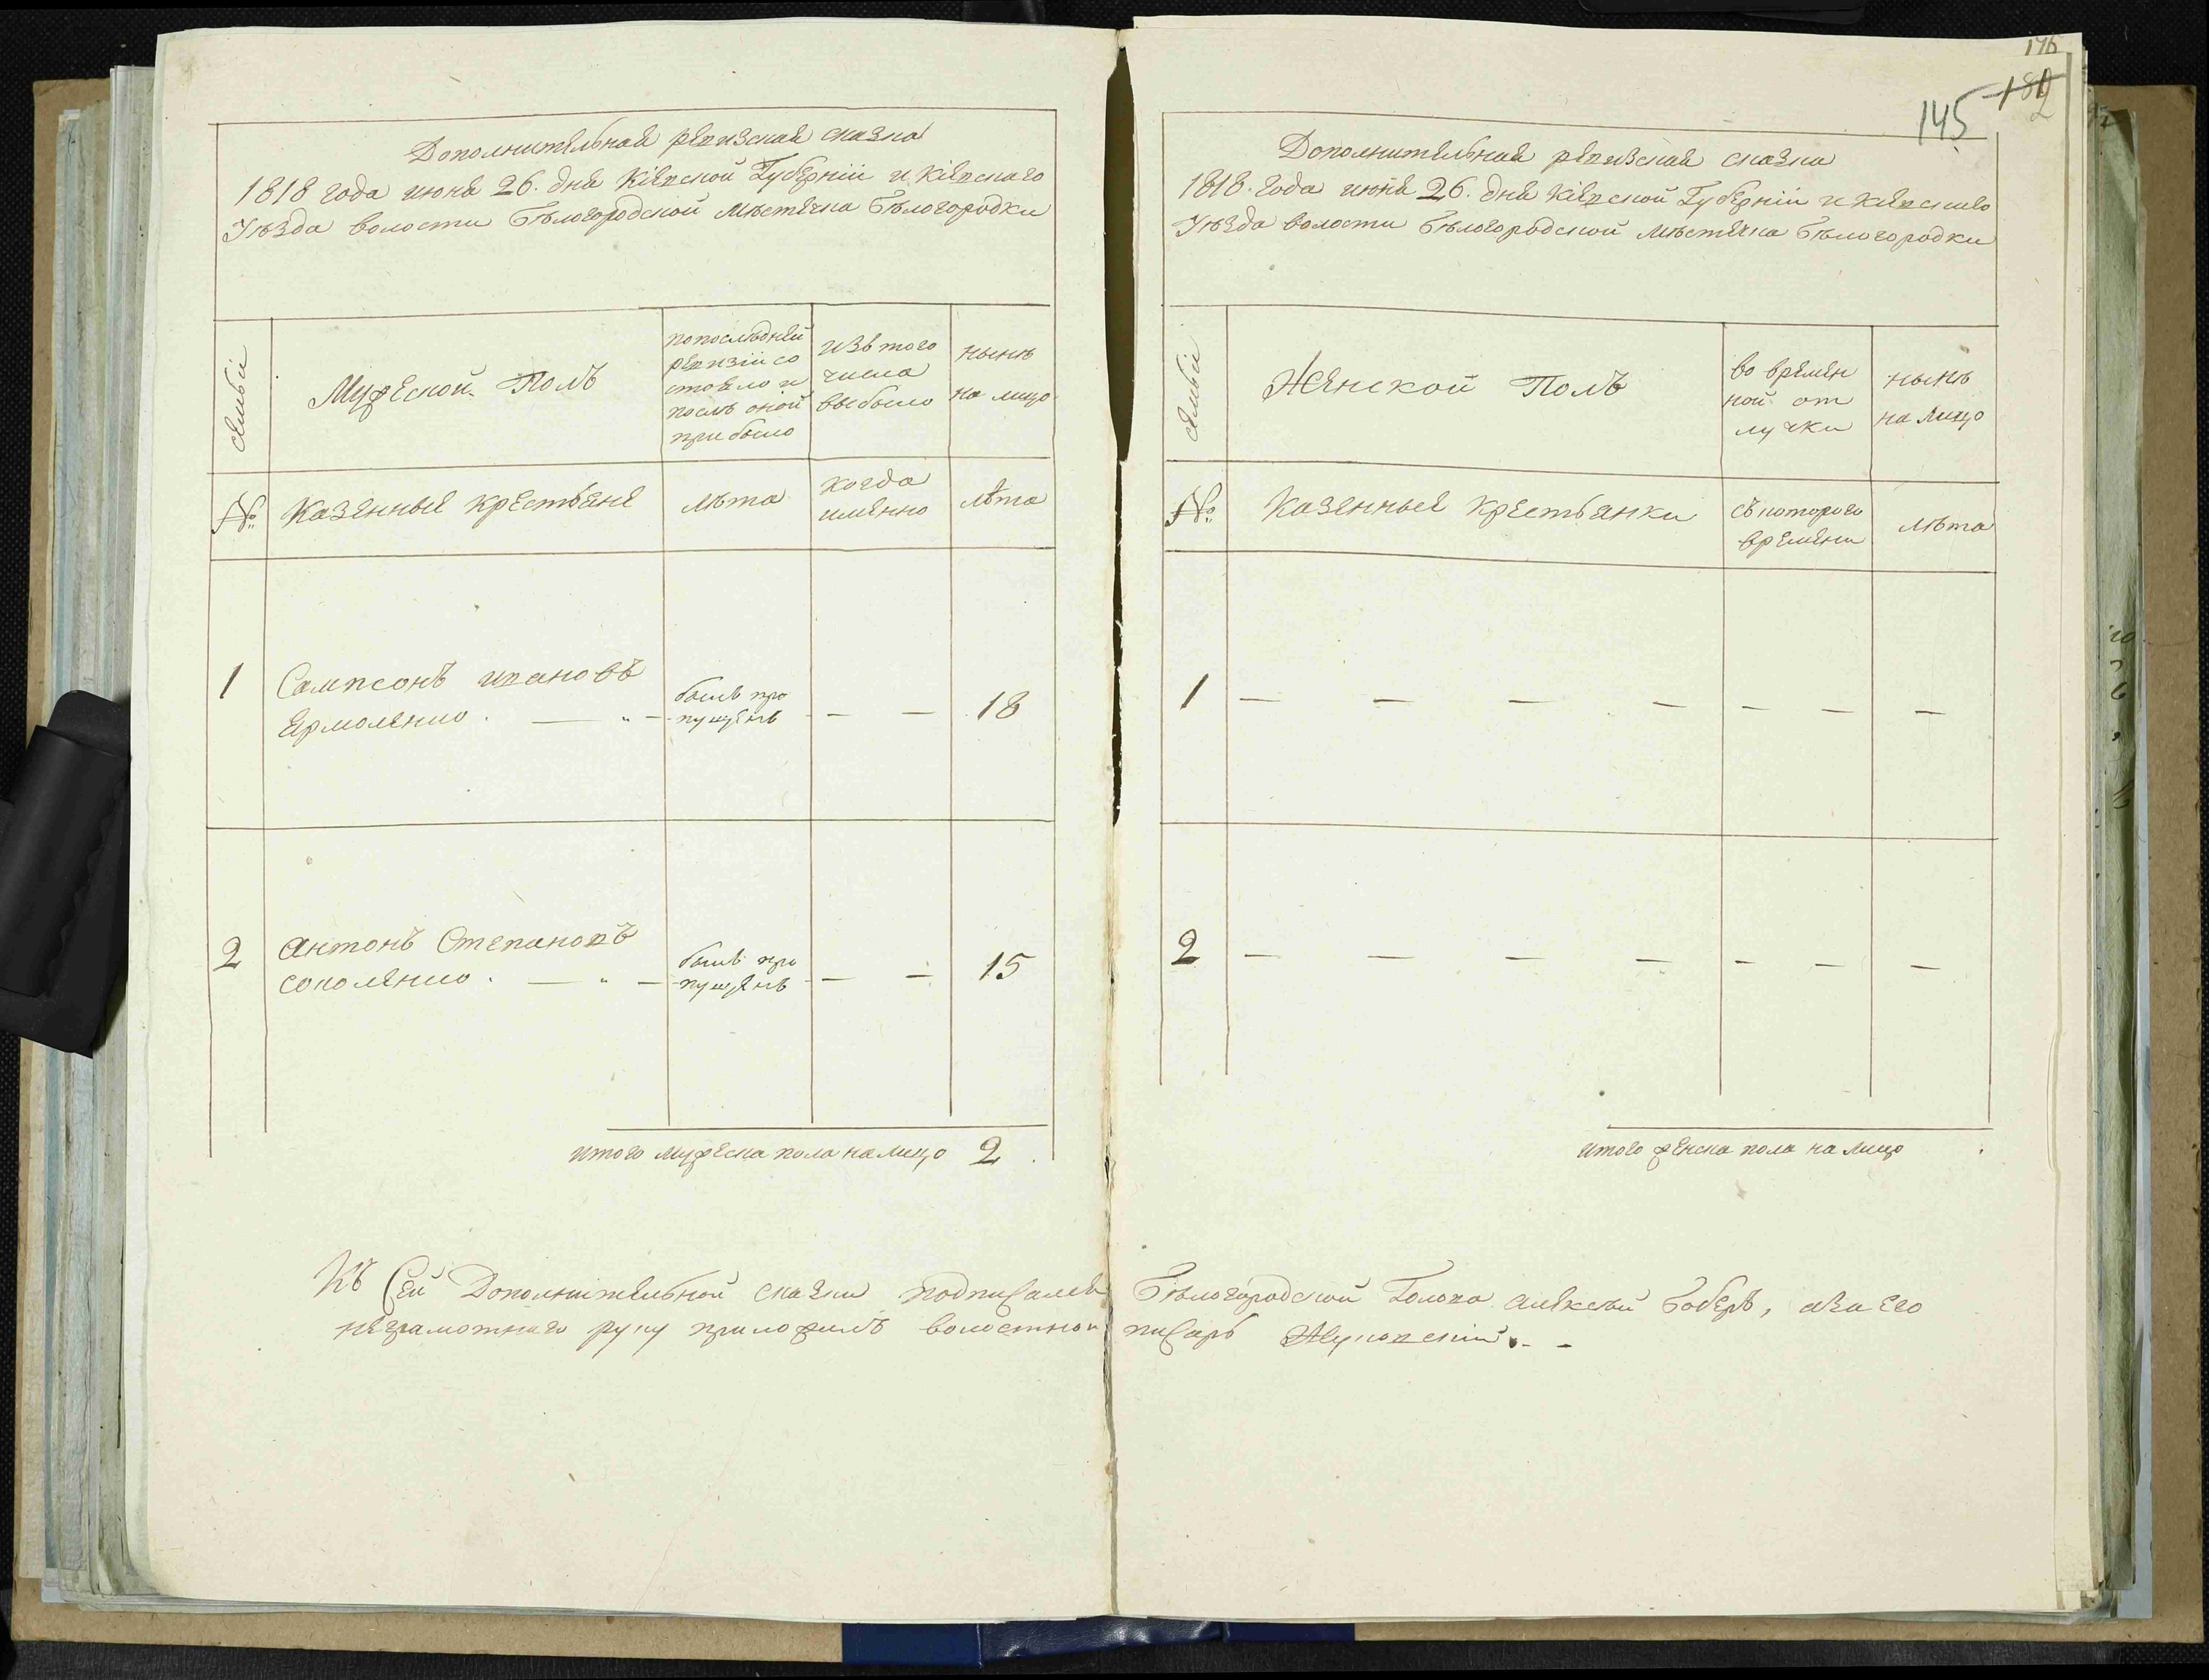 Дополнительная ревизская сказка
1818 года июня 26. дня Кіевской Губерніи и Кіевскаго
Уѣзда волости Бѣлогородской мѣстечка Бѣлогородки
семьи
Мужеской Полъ
попослѣдней
ревизіи со
стояло и
послѣ оной
прибыло
изъ того
числа
выбыло
нынѣ
на лицо
№
Казенные крестьяне
лѣта
когда
именно
лѣта
1
Сампсонъ ивановъ
Ермоленко . — „ —
былъ про
пущенъ
— —
18
2
Антонъ Степановъ
соколенко . — „ —
былъ про
пущенъ
— —
15
итого мужеска пола на лицо 2
146
182
145
Дополнительная ревизская сказка
1818. года июня 26. дня Кіевской Губерніи и Кіевскаго
Уѣзда волости Бѣлогородской мѣстечка Бѣлогородки
семьи
Женской Полъ
во времен
ной от
лучки
нынѣ
на лицо
№
Казенные Крестьянки
съ которого
времени
лѣта
1 — — — — — — —
2 — — — — — — —
итого женска пола на лицо
Къ Сей Дополнительной сказки подписался Бѣлогородской Голова алексѣй Боберъ, аза его
неграмотнаго руку приложилъ волостной писарь Жуковскій . -